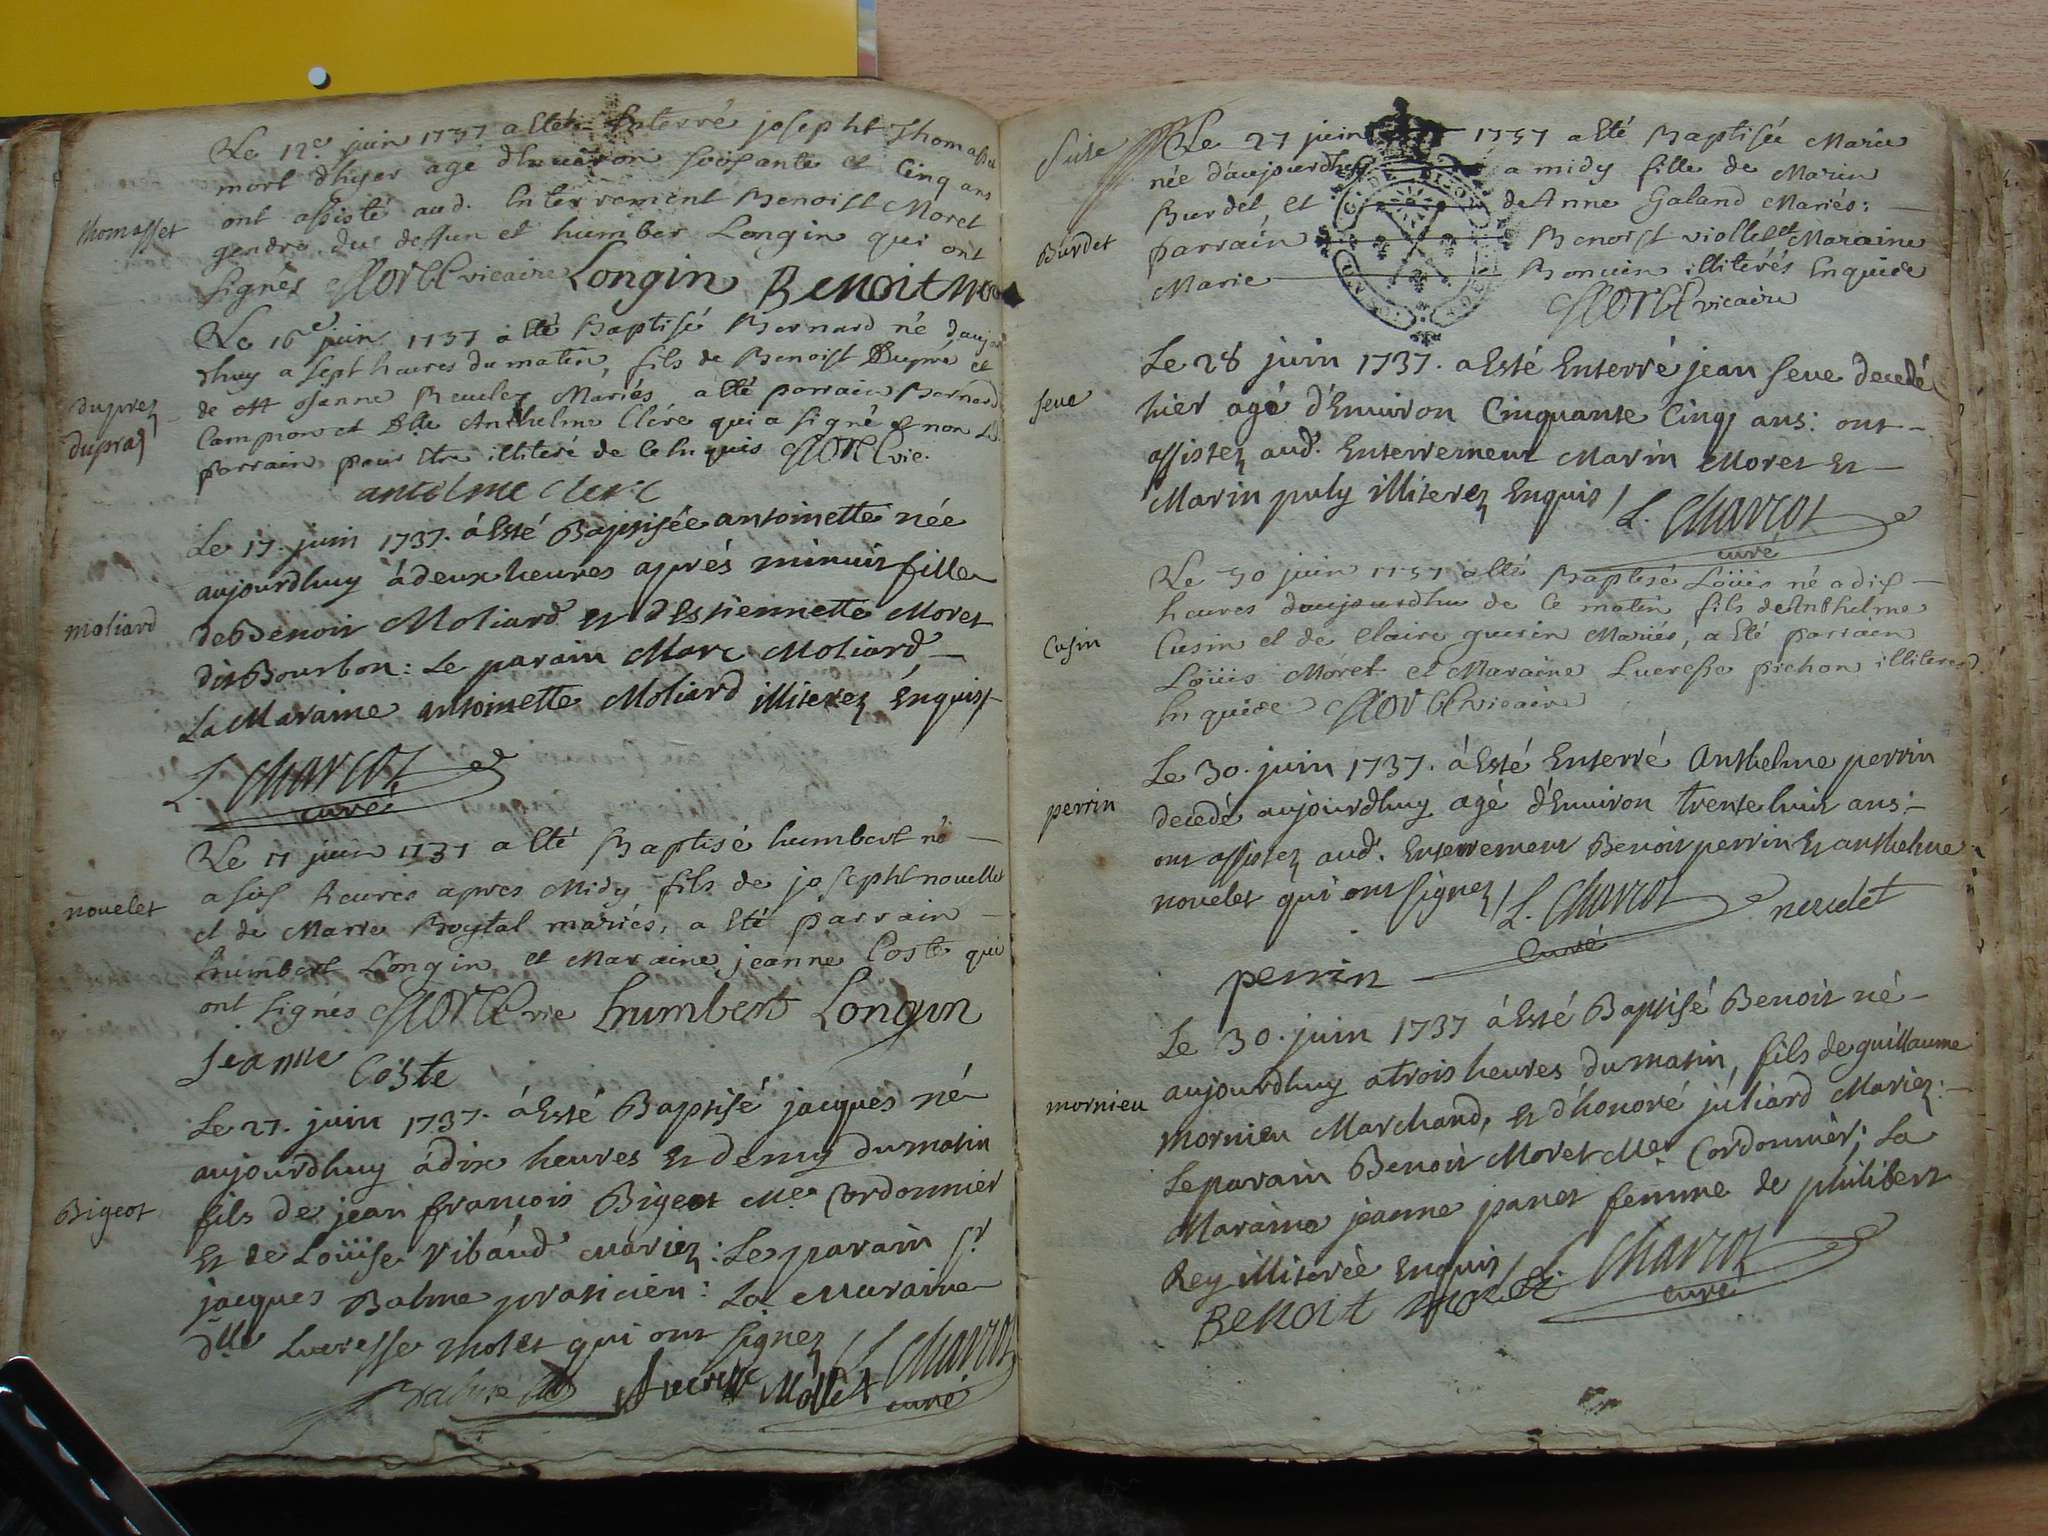 Le 12e juin 1737 a Eté Enterré joseph Thomasset
mort d'hyer agé d'environ soisante et Cinq ans
ont assisté aud. Enterrement Benoist Moret
thomasset
gendre du deffun et humber Longin qui ont
signés vicaire Longin Benoit
Le 16e juin 1737 a Eté Baptisé Bernard né d'aujour
dhuy a sept heures du matin, fils de Benoist Dupré et
de Mariés a Eté parrain Bernard
duprez
dupraz
Campion et Dlle Anthelme Clére qui a signé et non Le
parrain pour Etre illiteré de Ce Enquis vic.
antelme clerc
Le 17. juin 1737. á Esté Baptisée antoinette née
aujourdhuy á deux heures aprés minuit fille
de Benoit Moliard et d'Estiennette Moret
moliard
dit Bourbon: Le parain Marc Moliard
La Maraine antoinette Moliard illiterez Enquis
L. Charcot
curé
Le 17 juin 1737 a Eté Baptisé humbert né
a sis heures apres Midy fils de joseph nouellet
nouelet
et de Marie Boytal mariés, a Eté parrain
humbert Longin et Maraine jeanne Coste qui
ont signés vic humbert Longin
jeanne Coste
Le 27. juin 1737. á Esté Baptisé jacques né
aujourdhuy á dix heures et demy du matin
fils de jean francois Bigeot Me Cordonnier
Bigeot
et de Loüise Ribaud Mariez: Le parain sr
jacques Balme praticien: La Maraine
dlle Lucresse Molet qui ont signez
Balme Lucresse Mollet L. Charcot
curé
suite Le 27 juin 1737 a Eté Baptisée Marie
née d'aujourdhuy a midy fille de Marin
Burdet, et de Anne Galand Mariés:
Burdet
parrain Benoist viollet et Maraine
Marie illiterés Enquise
vicaire
Le 28 juin 1737. a Esté Enterré jean seue decedé
seue
hier agé d'Enuiron Cinquante Cinq ans: ont
assistez aud. Enterrement Marin Moret Et
Marin puly illiterez Enquis L. Charcot
curé
Le 30 juin 1737 a Eté Baptisé Loüis né a dis
heures daujourdhu de Ce matin fils de Anthelme
Cusin
Cusin et de Claire guerin Mariés, a Eté parrain
Loüis Moret et Maraine Lucresse pichon illiteres
Enquise vicaire
Le 30. juin 1737. á Esté Enterré Anthelme perrin
perrin
decedé aujourdhuy agé d'Enuiron trente huit ans:
ont assistez aud. Enterrement Benoit perrin Et anthelme
nouelet qui ont signez L. Charcot
curé
perrin
Le 30. juin 1737 á Esté Baptisé Benoit né
aujourdhuy a trois heures du matin, fils de guillaume
mornieu
mornieu Marchand, et d'honoré juliard Mariez:
Le parain Benoit Moret Me Cordonnier; La
Maraine jeanne panet femme de philibert
Rey illiterée Enquis L. Charcot
curé
Benoit moret